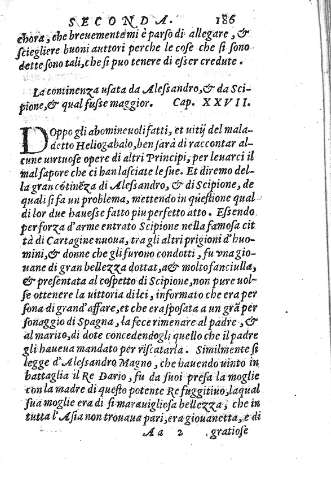 SECONDA. 186
chora, che breuemente mi è parso di allegare, &
sciegliere buoni auttori perche le cose che si sono
dette sono tali, che si puo tenere di esser credute.
La continenza vsata da Alessandro, & da Sci-
pione, & qual fusse maggior. Cap. XXVII.
Doppo gli abomineuoli fatti, et uitij del mala-
detto Heliogabalo, ben sarà di raccontar al-
cune uirtuose opere di altri Principi, per leuarci il
mal sapore che ci han lasciate le sue. Et diremo del-
la gran cōtinēza di Alessandro, & di Scipione, de
quali si fa un problema, mettendo in questione qual
di lor due hauesse fatto piu perfetto atto. Essendo
per forza d'arme entrato Scipione nella famosa cit
tà di Cartagine nuoua, tra gli altri prigioni d'huo-
mini, & donne che gli furono condotti, fu vna gio-
uane di gran bellezza dottat, a& molto fanciulla,
& presentata al cospetto di Scipione, non pure uol-
se ottenere la uittoria di lei, informato che era per
sona di grand'affare, et che era sposata a un grā per
sonaggio di Spagna, la fece rimenare al padre, &
al marito, di dote concedendogli quello che il padre
gli haueua mandato per riscatarla. Similmente si
legge d'Alessandro Magno, che hauendo uinto in
battaglia il Re Dario, fu da suoi presa la moglie
con la madre di questo potente Re fuggitiuo, laqual
sua moglie era di sì marauigliosa bellezza, che in
tutta l'Asia non trouaua pari, era giouanetta, e di
Aa 2 gratiose